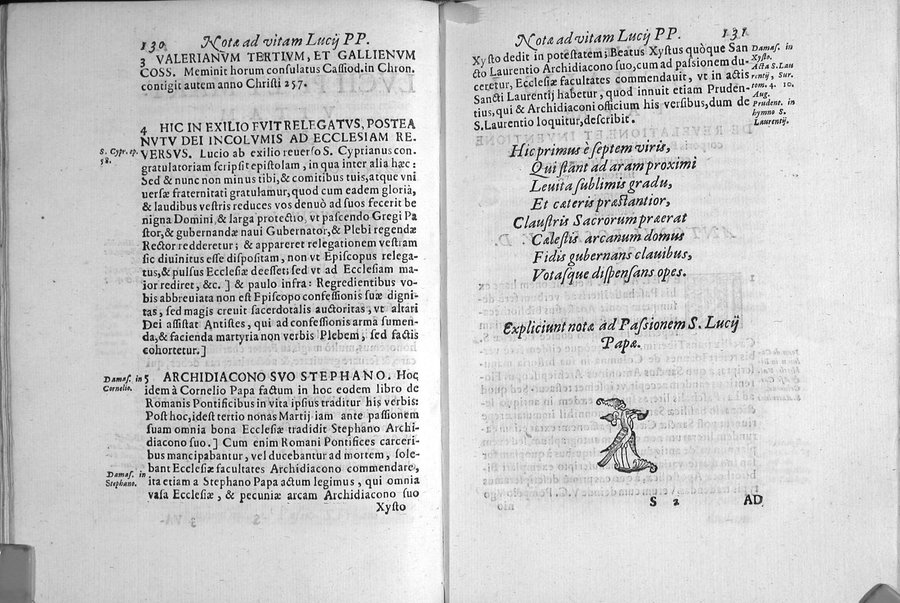 130 Notæ ad vitam Lucij PP.
3 VALERIANVM TERTIVM, ET GALLIENVM
COSS. Meminit horum consulatus Cassiod. in Chron.
contigit autem anno Christi 257.
4 HIC IN EXILIO FVIT RELEGATVS, POSTEA
NVTV DEI INCOLVMIS AD ECCLESIAM RE-
S. Cypr. ep. 58.
VERSVS. Lucio ab exilio reuerso S. Cyprianus con
gratulatoriam scripsit epistolam, in qua inter alia hæc:
Sed & nunc non minus tibi, & comitibus tuis, atque vni
uersæ fraternitati gratulamur, quod cum eadem gloria,
& laudibus vestris reduces vos denuò ad suos fecerit be
nigna Domini, & larga protectio, vt pascendo Gregi Pa
stor, & gubernandæ naui Gubernator, & Plebi regendæ
Rector redderetur; & appareret relegationem vestram
sic diuinitus esse dispositam, non vt Episcopus relega-
tus, & pulsus Ecclesiæ deesset; sed vt ad Ecclesiam ma-
ior rediret, &c. ] & paulo infra: Regredientibus vo-
bis abbreuiata non est Episcopo confessionis suæ digni-
tas, sed magis creuit sacerdotalis auctoritas, vt altari
Dei assistat Antistes, qui ad confessionis arma sumen-
da, & facienda martyria non verbis Plebem, sed factis
cohortetur. ]
Damas. in
Cornelio.
5 ARCHIDIACONO SVO STEPHANO. Hoc
idem à Cornelio Papa factum in hoc eodem libro de
Romanis Pontificibus in vita ipsius traditur his verbis:
Post hoc, idest tertio nonas Martij iam ante passionem
suam omnia bona Ecclesiæ tradidit Stephano Archi-
diacono suo. ] Cum enim Romani Pontifices carceri-
bus mancipabantur, vel ducebantur ad mortem, sole-
bant Ecclesiæ facultates Archidiacono commendare,
Damas. in
Stephano.
ita etiam a Stephano Papa actum legimus, qui omnia
vasa Ecclesiæ, & pecuniæ arcam Archidiacono suo
Xysto
Notæ ad vitam Lucij PP. 131
Xysto dedit in potestatem; Beatus Xystus quòque San
cto Laurentio Archidiacono suo, cum ad passionem du-
ceretur, Ecclesiæ facultates commendauit, vt in actis
Sancti Laurentij habetur, quod innuit etiam Pruden-
tius, qui & Archidiaconi officium his versibus, dum de
S. Laurentio loquitur, describit.
Damas. in
Xysto.
Acta S. Lau
rentij, Sur.
tom. 4. 10.
Aug.
Prudent. in
hymno S.
Laurentij.
Hic primus è septem viris,
Qui stant ad aram proximi
Leuita sublimis gradu,
Et cæteris præstantior,
Claustris Sacrorum præerat
Cælestis arcanum domus
Fidis gubernans clauibus,
Votasque dispensans opes.
Expliciunt notæ ad Passionem S. Lucij
Papæ.
S 2 AD